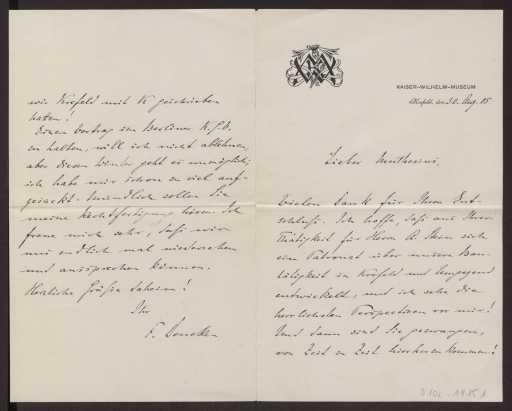 KAISER-WILHELM-MUSEUM
Crefeld, den 30. Aug. 05
Lieber Muthesius,
Vielen Dank für Ihren Ent-
schluß. Ich hoffe, daß aus Ihrer
Thätigkeit für Herrn
ein Patronat über unsere Bau-
tätigkeit in Krefeld und Umgegend
entwickelt, und ich sehe die
herrlichsten Perspectiven vor mir!
Und dann sind Sie gezwungen,
von Zeit zu Zeit hierherzukommen!
wir Krefeld mit K geschrieben
haben!
Einen Vortrag im Berliner K.G.V.
zu halten, will ich nicht ablehnen,
aber diesen Winter geht es unmöglich,
ich habe mir schon zu viel auf-
gesackt. Mündlich sollen Sie
meine Rechtfertigung hören. Ich
freue mich sehr, daß wir
uns endlich mal wiedersehen
und aussprechen können.
Herzliche Grüße daheim!
Ihr
F. Deneken